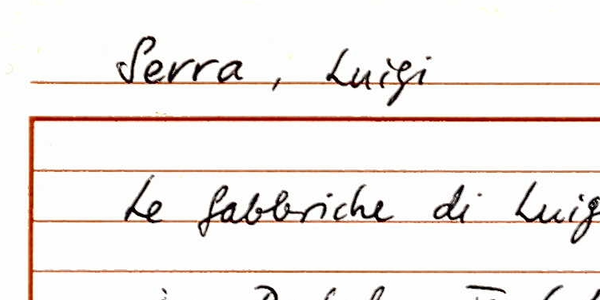 Serra, Luigi
Le fabbriche di Luig